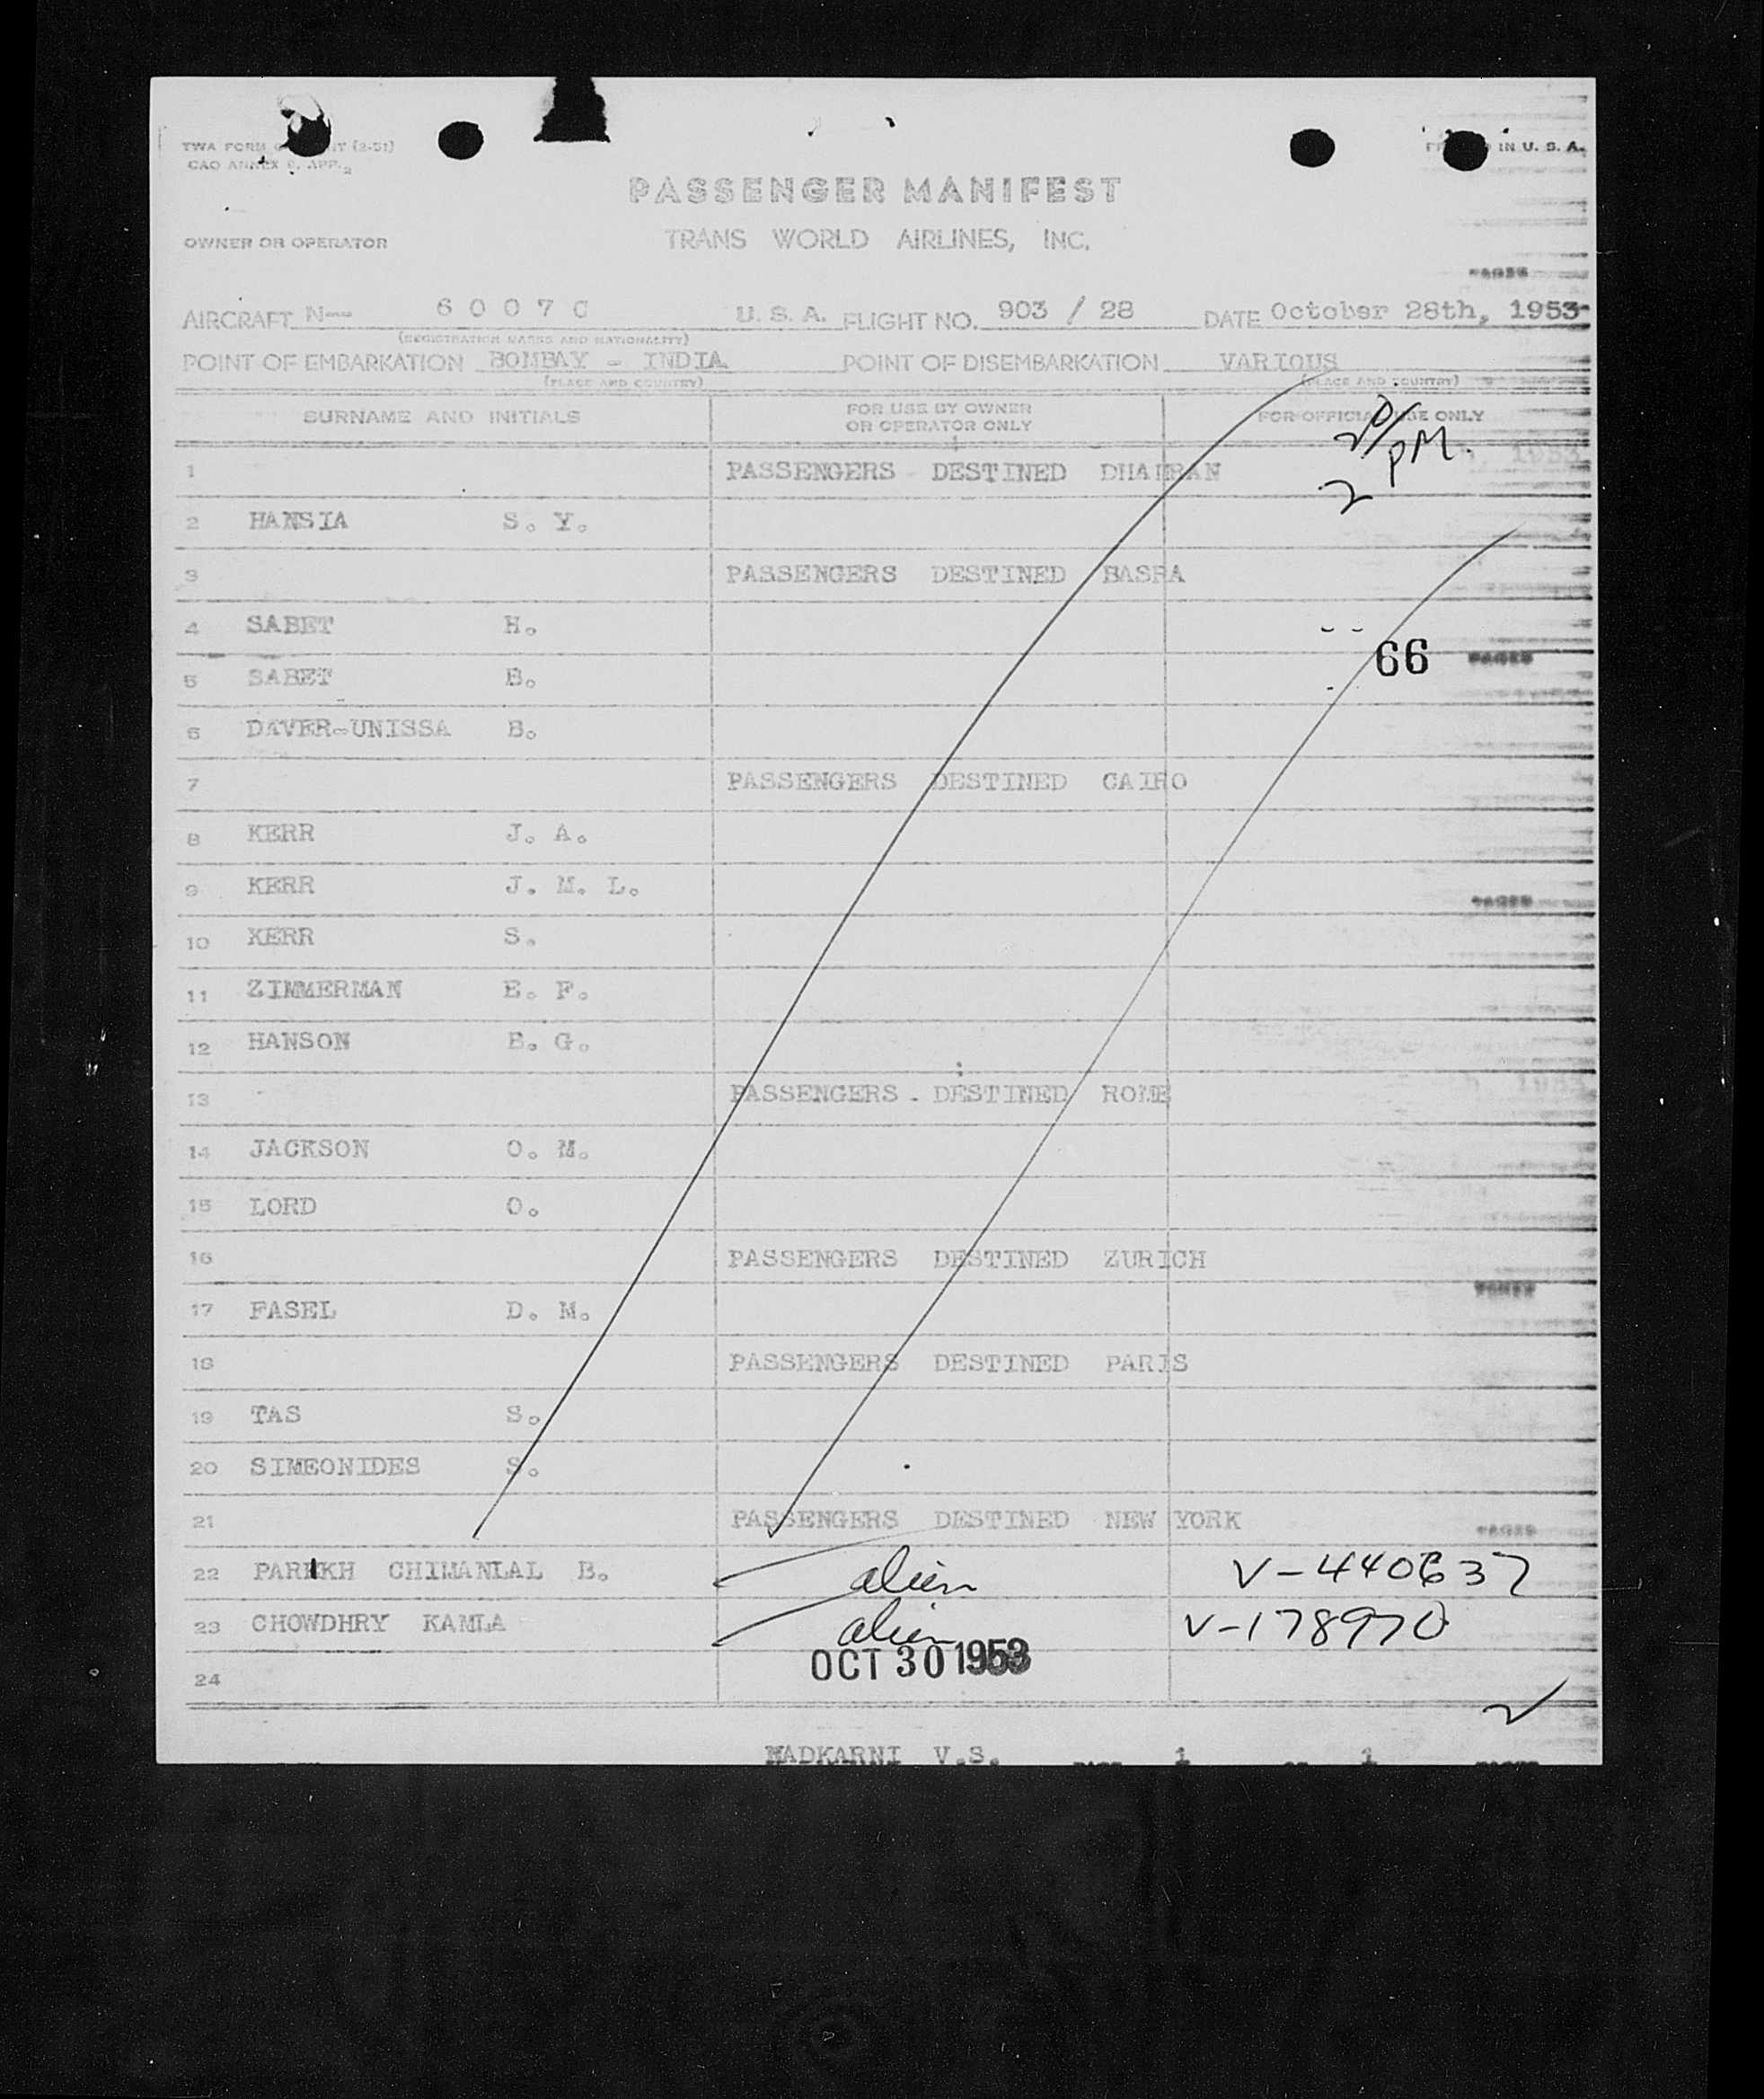 TWA FORM (2-51)
PASSENGER MANIFEST
IN U. S. A.
OWNER OR OPERATOR TRANS WORLD AIRLINES, INC.
PAGES
AIRCRAFT N-- 6 0 0 7 C U. S. A. FLIGHT NO. 903 / 28 DATE October 28th, 1953
(REGISTRATION MARKS AND NATIONALITY)
POINT OF EMBARKATION BOMBAY - INDIA POINT OF DISEMBARKATION VARIOUS
(PLACE AND COUNTRY) (PLACE AND COUNTRY)
SURNAME AND INITIALS FOR USE BY OWNER OR OPERATOR ONLY FOR OFFICIAL USE ONLY
2 20/ PM
1 PASSENGERS DESTINED DHAHRAN
2 HANSIA S. Y.
3 PASSENGERS DESTINED BASRA
4 SABET H.
66 PAGES
5 SABET B.
6 DAVER-UNISSA B.
7 PASSENGERS DESTINED CAIRO
8 KERR J. A.
9 KERR J. M. L.
PAGES
10 KERR S.
11 ZIMMERMAN E. F.
12 HANSON E. G.
13 PASSENGERS - DESTINED ROME
14 JACKSON O. M.
15 LORD O.
16 PASSENGERS DESTINED ZURICH
17 FASEL D. M.
18 PASSENGERS DESTINED PARIS
19 TAS S.
20 SIMEONIDES S.
21 PASSENGERS DESTINED NEW YORK
PAGES
22 PARIKH CHIMANLAL B. alien V-440637
23 CHOWDHRY KAMLA alien V-178970
OCT 30 1953
24
NADKARNI V.S. PAGE 1 OF 1 PAGES